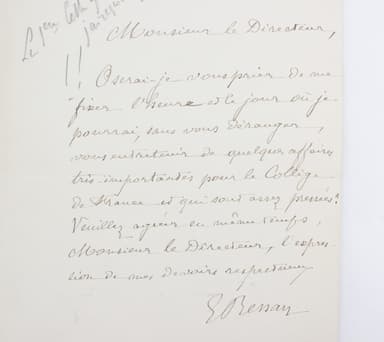 Le 1er
j'ai reçu
Monsieur le Directeur,
!!
Oserai-je vous prier de me
fixer l'heure et le jour où je
pourrai, sans vous déranger,
vous entretenir de quelques affaires
très importantes pour le Collège
de France et qui sont assez pressées?
Veuillez agréer en même temps,
Monsieur le Directeur, l'expres-
sion de mes devoirs respectueux
E Renan